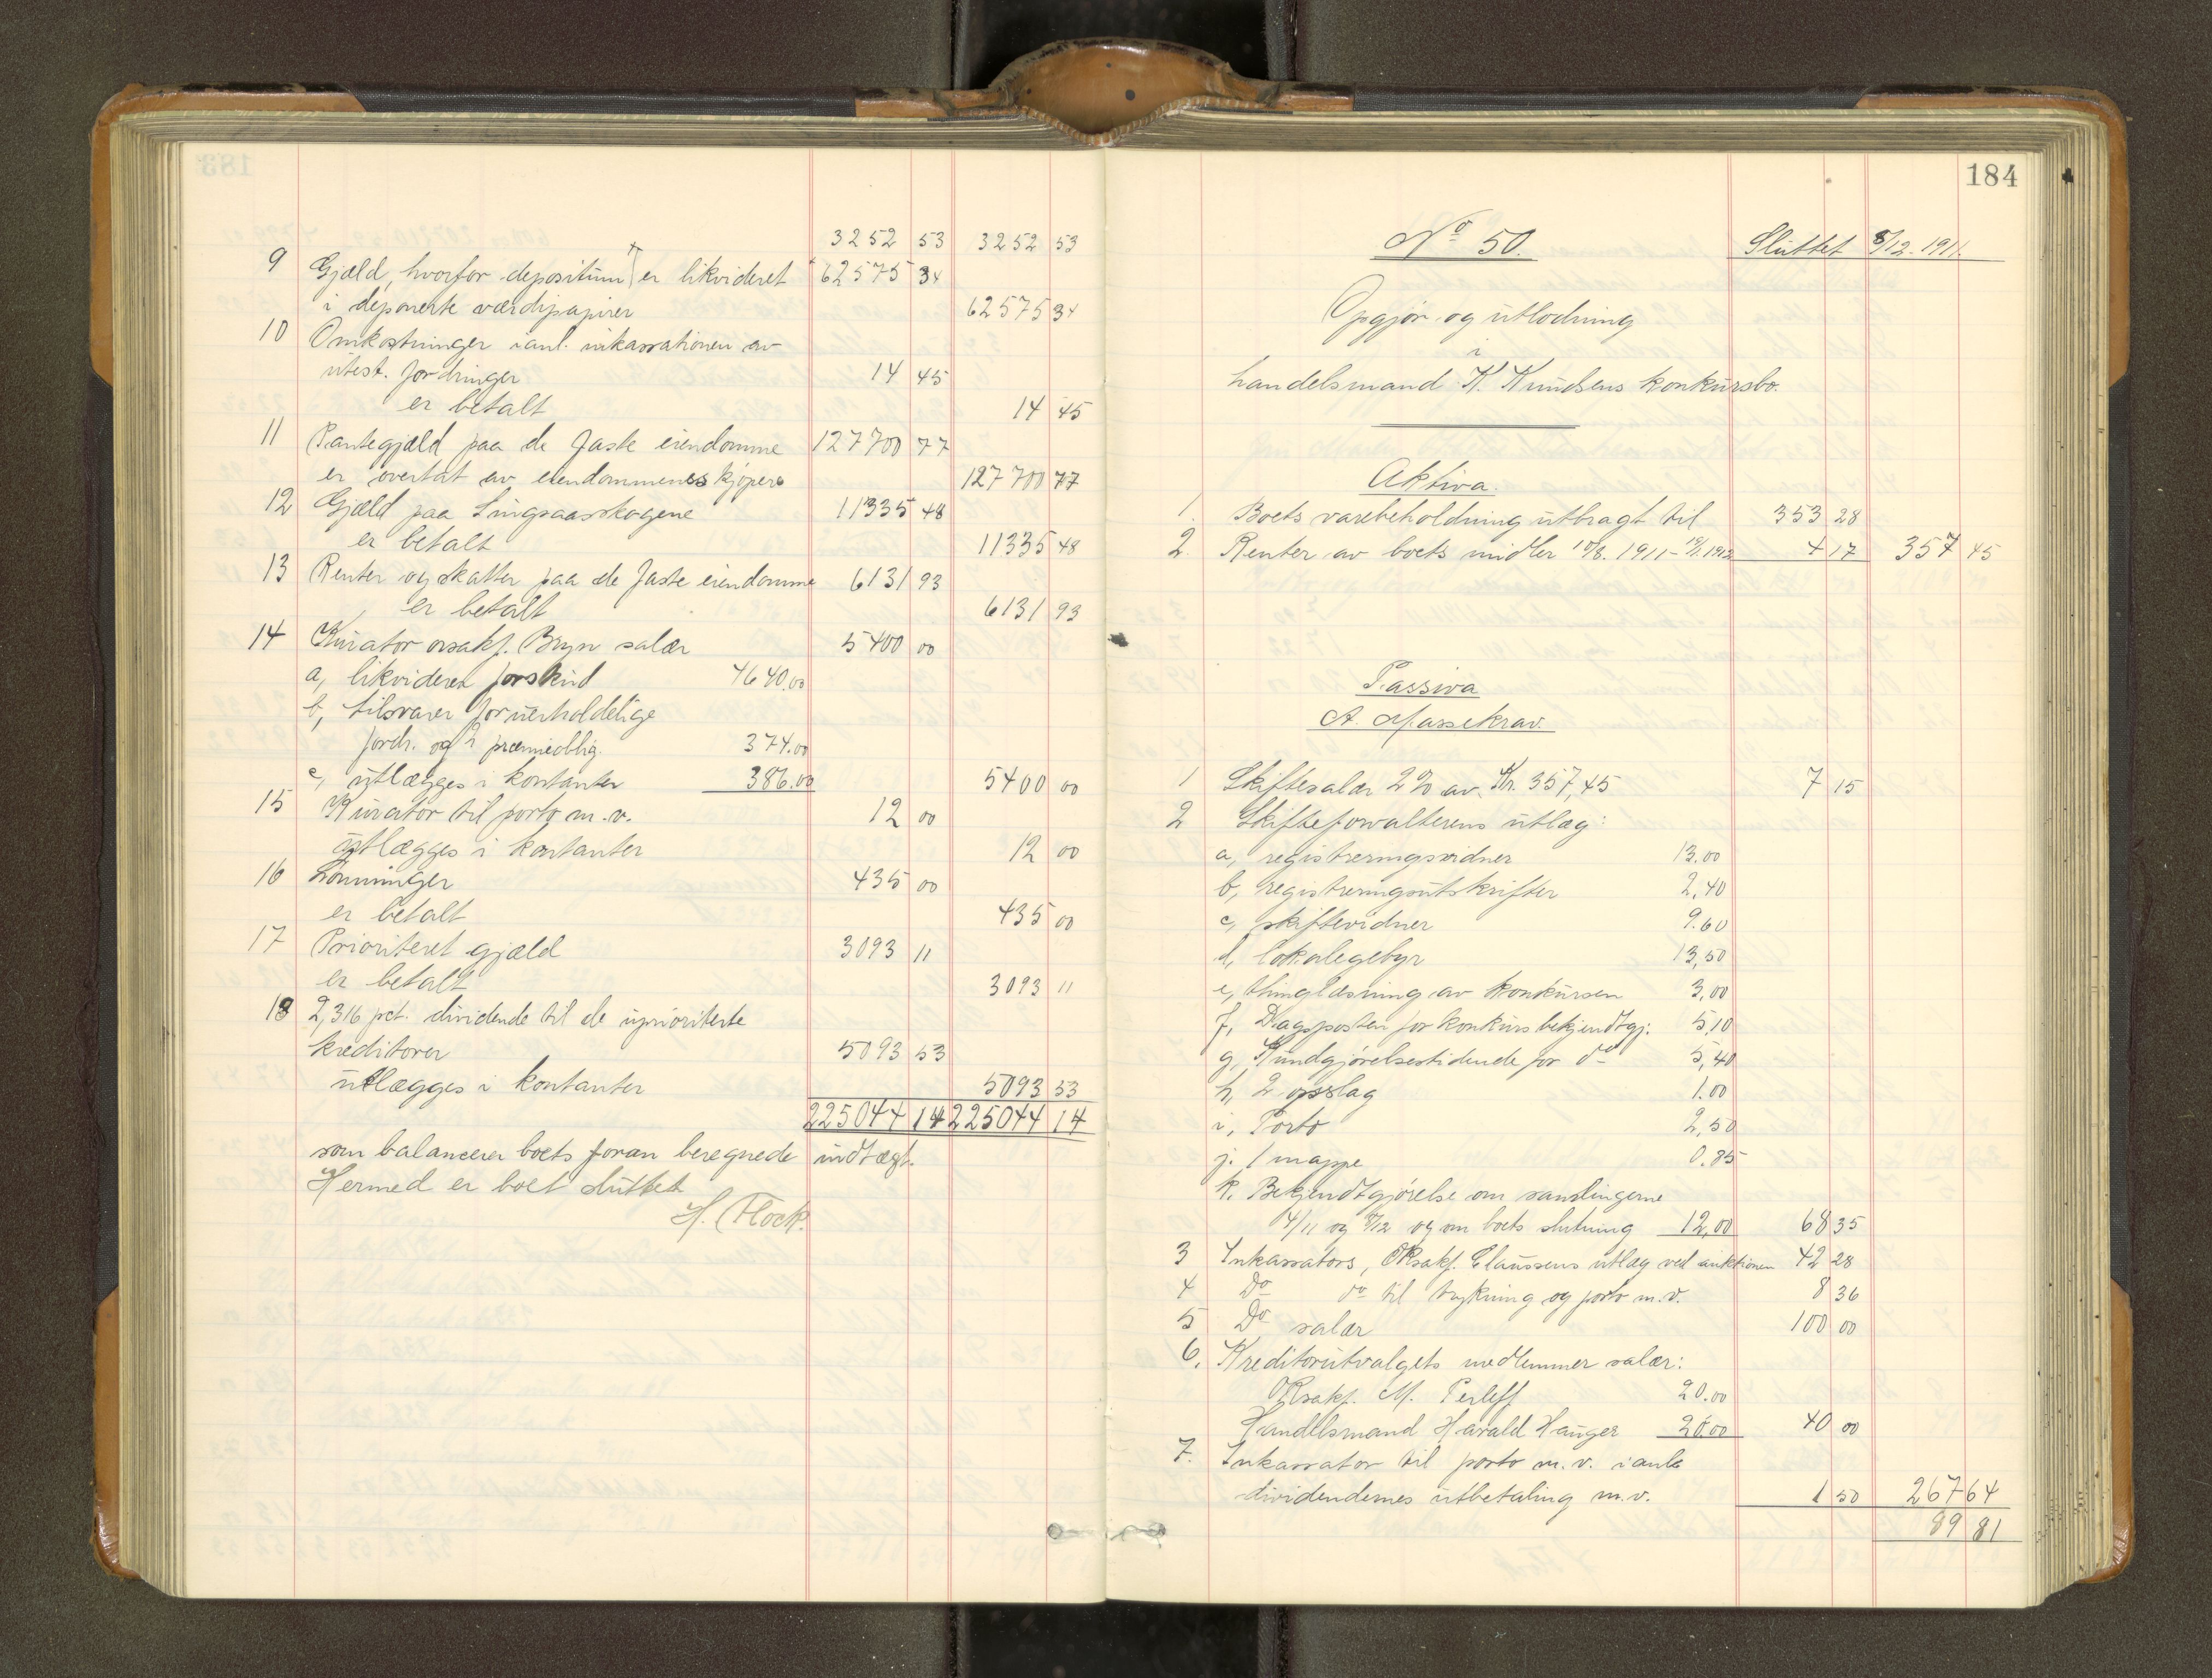 3252 53 3252 53
9 Gjæld, hvorfor depositum er likvideret 62575 34
i deponerte værdipapirer 62575 34
10 Omkostninger i anl. inkassationen av
utest. fordringer 14 45
er betalt 14 45
11 Pantegjæld paa de faste eiendomme 127700 77
er overtat av eiendommenes kjøpere 127700 77
12 Gjæld paa Singsaasskogene 11335 48
er betalt 11335 48
13 Renter og skatter paa de faste eiendomme 6131 93
er betalt 6131 93
14 Kurator orsakf. Bryn salær 5400 00
a, likvideres forskud 4640.00
b, tilsvarer for uerholdelige
fordr. og 2 præmieoblig. 374.00
c, utlægges i kontanter 386.00 5400 00
15 Kurator til porto m.v. 12 00
utlægges i kontanter 12 00
16 Lønninger 435 00
er betalt 435 00
17 Prioriteret gjæld 3093 11
er betalt 3093 11
18 2,316 pct. dividende til de uprioriterte
kreditorer 5093 53
utlægges i kontanter 5093 53
225044 14 225044 14
som balancerer boets foran beregnede indtægt.
Hermed er boet sluttet
H. Flock.
184
No 50. Sluttet 8/12. 1911.
Opgjør og utlodning
i
handelsmand K. Knudsens konkursbo.
Aktiva.
1. Boets varebeholdning utbragt til 353 28
2. Renter av boets midler 10/8. 1911 - 19/1. 1912 4 17 357 45
Passiva
A. Massekrav.
1 Skiftesalær 2% av Kr. 357,45 7 15
2 Skifteforvalterens utlæg:
a, registreringsvidner 13.00
b, registreringsutskrifter 2,40
c, skiftevidner 9.60
d, lokalegebyr 13,50
e, thinglæsning av konkursen 3,00
f, Dagsposten for konkursbekjendtgj. 5,10
g, Kundgjørelsestidende for do 5,40
h, 2 opslag 1.00
i, Porto 2,50
j. 1 mappe 0.85
k. Bekjendtgjørelse om samlingerne
4/11 og 8/12 og om boets slutning 12,00 68 35
3 Inkassators, ORsakf. Claussens utlæg ved auktionen 42 28
4 Do do til trykning og porto m.v. 8 36
5 Do salær 100 00
6. Kreditorutvalgets medlemmer salær:
ORsakf. M. Perleff 20.00
Handelsmand Harald Hauger 20.00 40 00
7. Inkassator til porto m.v. i anl.
dividendernes utbetaling m.v. 1 50 267 64
89 81